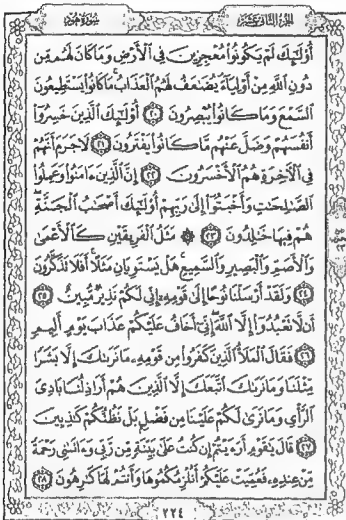 الجزء الثاني عشر
سورة هود
أُوْلَٰٓئِكَ لَمْ يَكُونُوا۟ مُعْجِزِينَ فِى ٱلْأَرْضِ وَمَا كَانَ لَهُم مِّن
دُونِ ٱللَّهِ مِنْ أَوْلِيَآءَ يُضَٰعَفُ لَهُمُ ٱلْعَذَابُ مَا كَانُوا۟ يَسْتَطِيعُونَ
ٱلسَّمْعَ وَمَا كَانُوا۟ يُبْصِرُونَ ٢٠ أُوْلَٰٓئِكَ ٱلَّذِينَ خَسِرُوٓا۟
أَنفُسَهُمْ وَضَلَّ عَنْهُم مَّا كَانُوا۟ يَفْتَرُونَ ٢١ لَا جَرَمَ أَنَّهُمْ
فِى ٱلْءَاخِرَةِ هُمُ ٱلْأَخْسَرُونَ ٢٢ إِنَّ ٱلَّذِينَ ءَامَنُوا۟ وَعَمِلُوا۟
ٱلصَّٰلِحَٰتِ وَأَخْبَتُوٓا۟ إِلَىٰ رَبِّهِمْ أُوْلَٰٓئِكَ أَصْحَٰبُ ٱلْجَنَّةِ
هُمْ فِيهَا خَٰلِدُونَ ٢٣ ۞ مَثَلُ ٱلْفَرِيقَيْنِ كَٱلْأَعْمَىٰ
وَٱلْأَصَمِّ وَٱلْبَصِيرِ وَٱلسَّمِيعِ هَلْ يَسْتَوِيَانِ مَثَلًا أَفَلَا تَذَكَّرُونَ
٢٤ وَلَقَدْ أَرْسَلْنَا نُوحًا إِلَىٰ قَوْمِهِۦٓ إِنِّى لَكُمْ نَذِيرٌ مُّبِينٌ ٢٥
أَن لَّا تَعْبُدُوٓا۟ إِلَّا ٱللَّهَ إِنِّىٓ أَخَافُ عَلَيْكُمْ عَذَابَ يَوْمٍ أَلِيمٍ
٢٦ فَقَالَ ٱلْمَلَأُ ٱلَّذِينَ كَفَرُوا۟ مِن قَوْمِهِۦ مَا نَرَىٰكَ إِلَّا بَشَرًا
مِّثْلَنَا وَمَا نَرَىٰكَ ٱتَّبَعَكَ إِلَّا ٱلَّذِينَ هُمْ أَرَاذِلُنَا بَادِىَ
ٱلرَّأْىِ وَمَا نَرَىٰ لَكُمْ عَلَيْنَا مِن فَضْلٍۭ بَلْ نَظُنُّكُمْ كَٰذِبِينَ
٢٧ قَالَ يَٰقَوْمِ أَرَءَيْتُمْ إِن كُنتُ عَلَىٰ بَيِّنَةٍ مِّن رَّبِّى وَءَاتَىٰنِى رَحْمَةً
مِّنْ عِندِهِۦ فَعُمِّيَتْ عَلَيْكُمْ أَنُلْزِمُكُمُوهَا وَأَنتُمْ لَهَا كَٰرِهُونَ ٢٨
٢٢٤